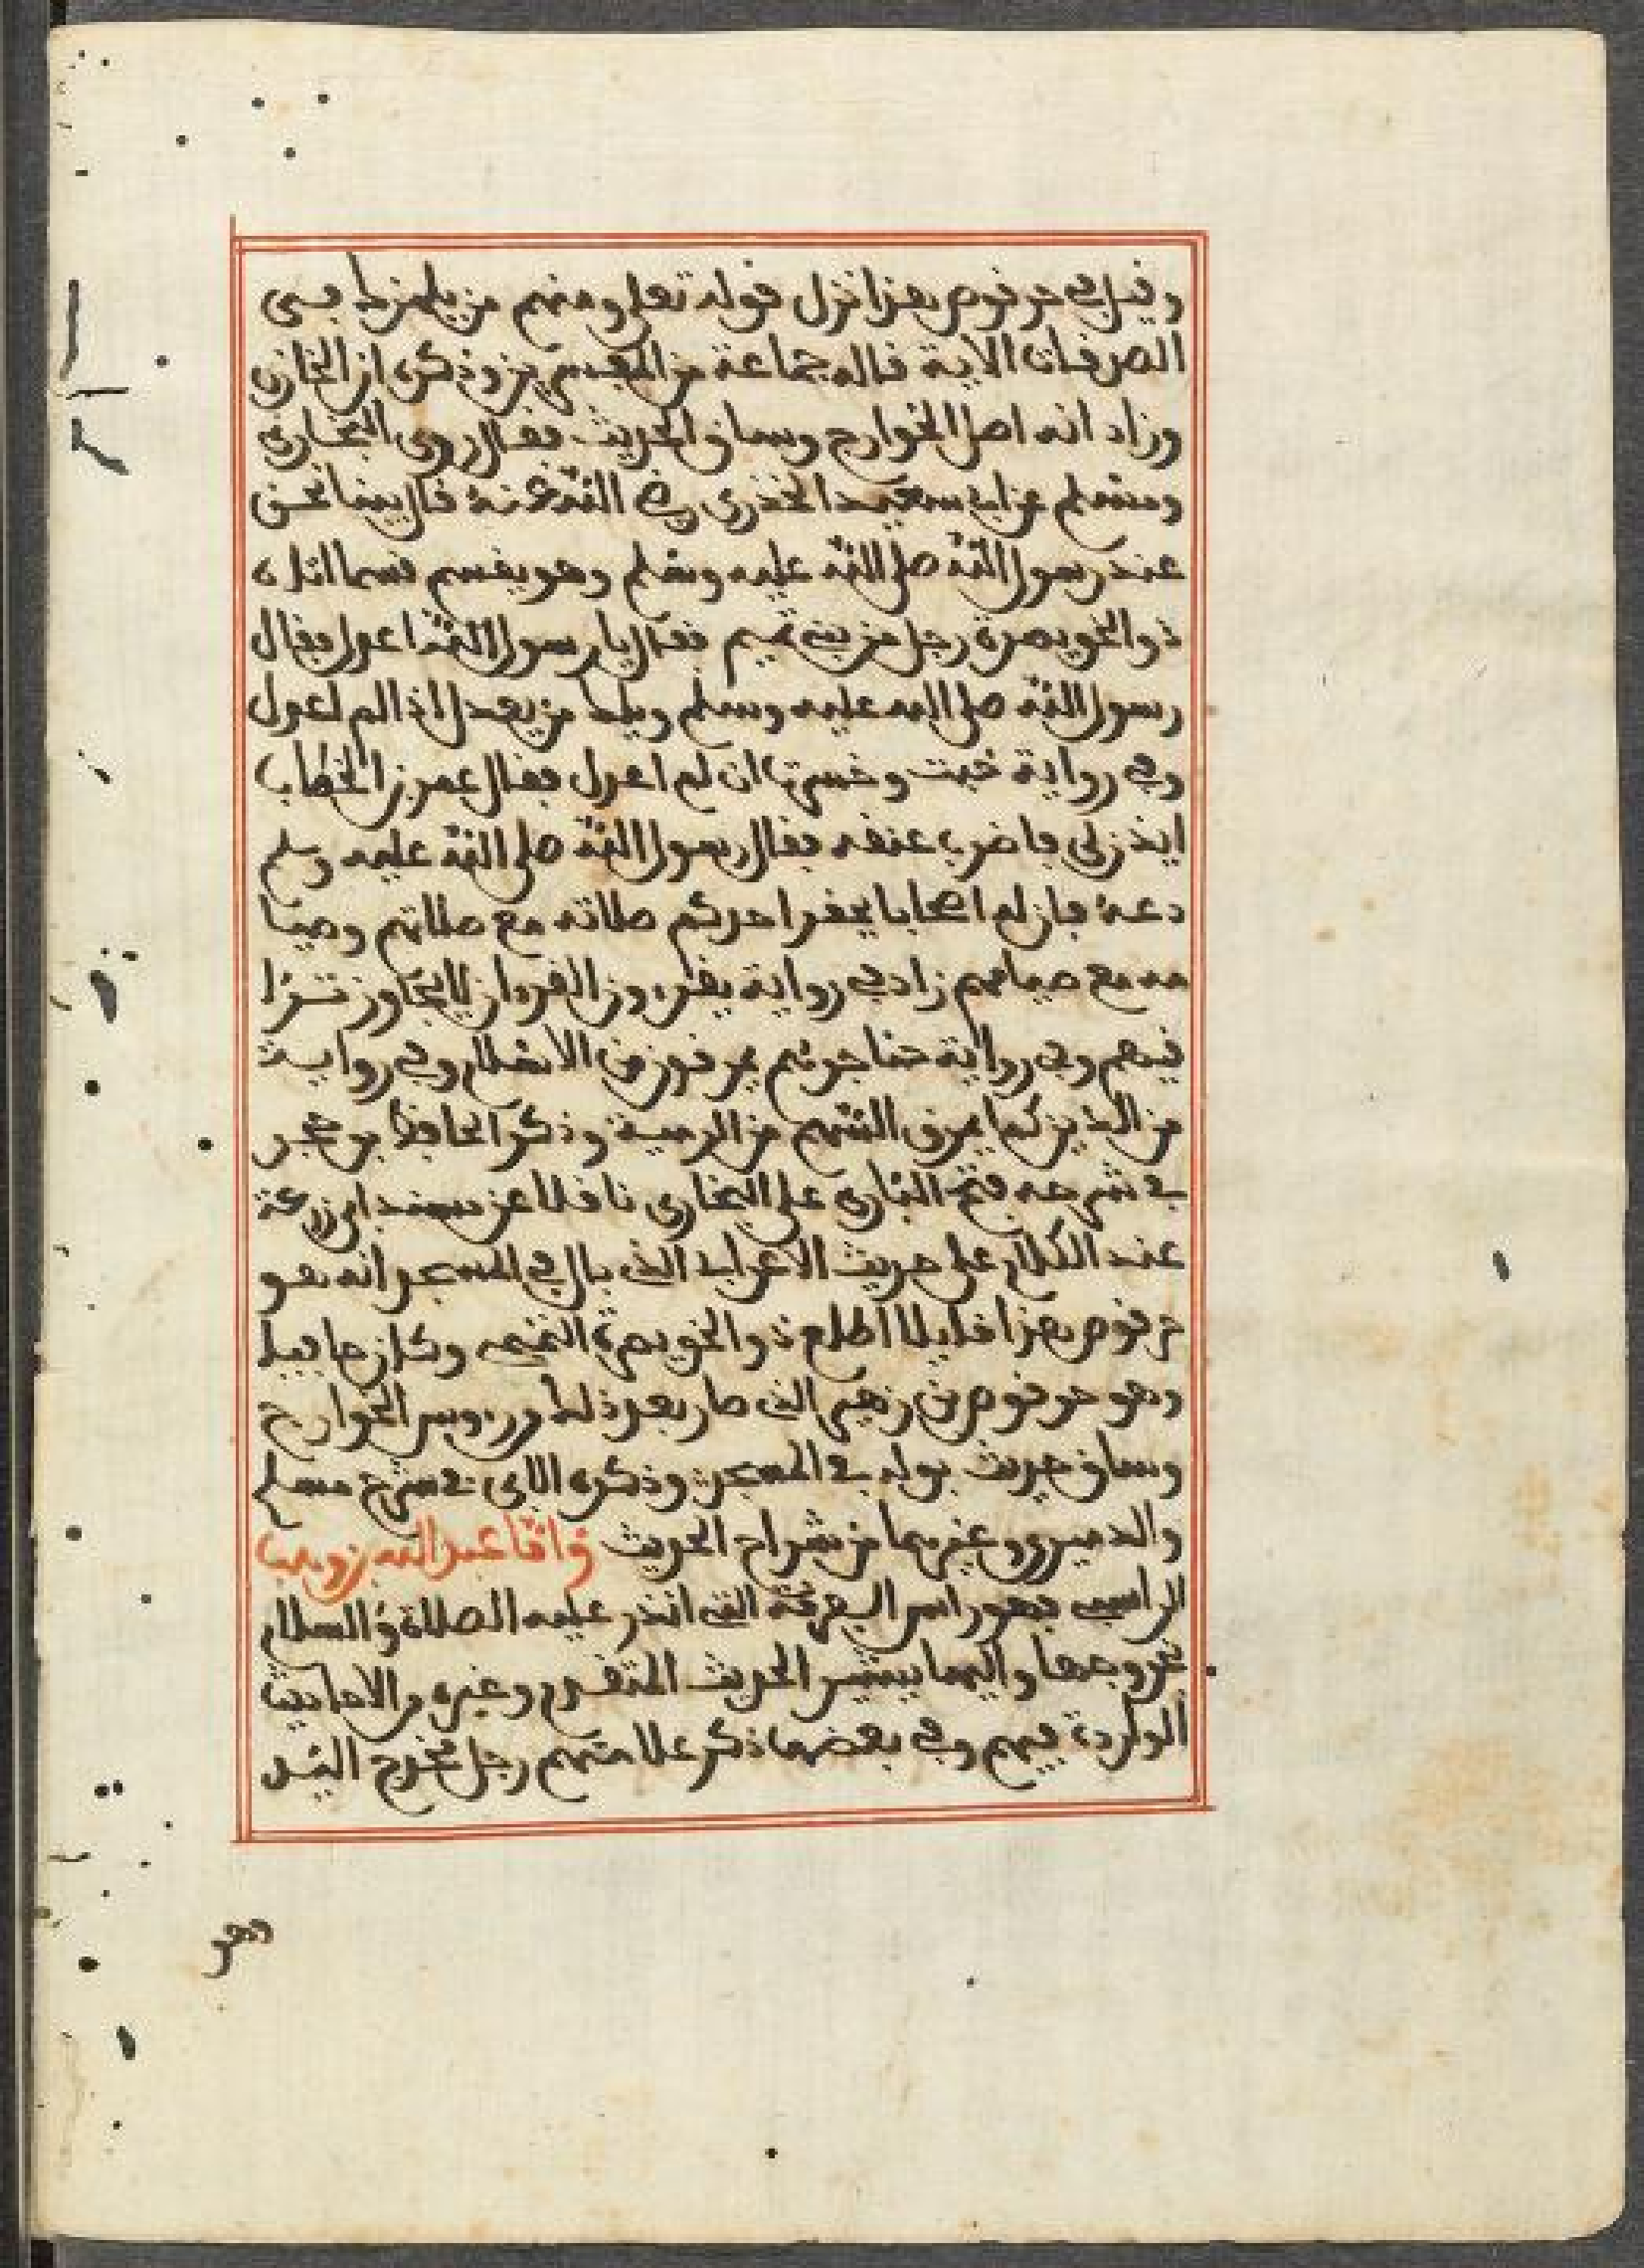 وقيل في حرقوص هذا نزل قوله تعلى ومنهم من يلمزك في
الصدقات الاية قاله جماعة من المفسرين وذكره الخازن
وزاد انه اصل الخوارج وساق الحديث فقال روى البخاري
ومسلم عن ابي سعيد الخذري رضي الله عنه قال بينما نحن
عند رسول الله صلى الله عليه وسلم وهو يقسم قسما اتاه
ذو الخويصرة رجل من بني تميم فقال يا رسول الله اعدل فقال
رسول الله صلى الله عليه وسلم ويلك من يعدل اذا لم اعدل
وفي رواية خبت وخسرت ان لم اعدل فقال عمر بن الخطاب
ايذن لي فاضرب عنقه فقال رسول الله صلى الله عليه وسلم
دعه فان له اصحابا يحقر احدكم صلاته مع صلاتهم وصيا
مه مع صيامهم زاد في رواية يقرءون القرءان لا يجاوز ترا
قيهم وفي رواية حناجرهم يمرقون من الاسلام وفي رواية
من الدين كما يمرق السهم من الرمية وذكر الحافظ بن حجر
في شرحه فتح الباري على البخاري ناقلا عن مسند ابن زرعة
عند الكلام على حديث الاعرابي الذي بال في المسجد انه هو
حرقوص هذا قايلا اطلع ذو الخويصرة التميمي وكان جافيا
وهو حرقوص بن زهير الذي صار بعد ذلك من رءوس الخوارج
وساق حديث بوله في المسجد وذكره الابي في شرح مسلم
والدميري وغيرهما من شراح الحديث واما عبد الله بن وهب
الراسبي فهو راس الفرقة التي انذر عليه الصلاة والسلام
بخروجها واليها يشير الحديث المتقدم وغيره من الاحاديث
الواردة فيهم وفي بعضها ذكر علامتهم رجل مخدج اليد